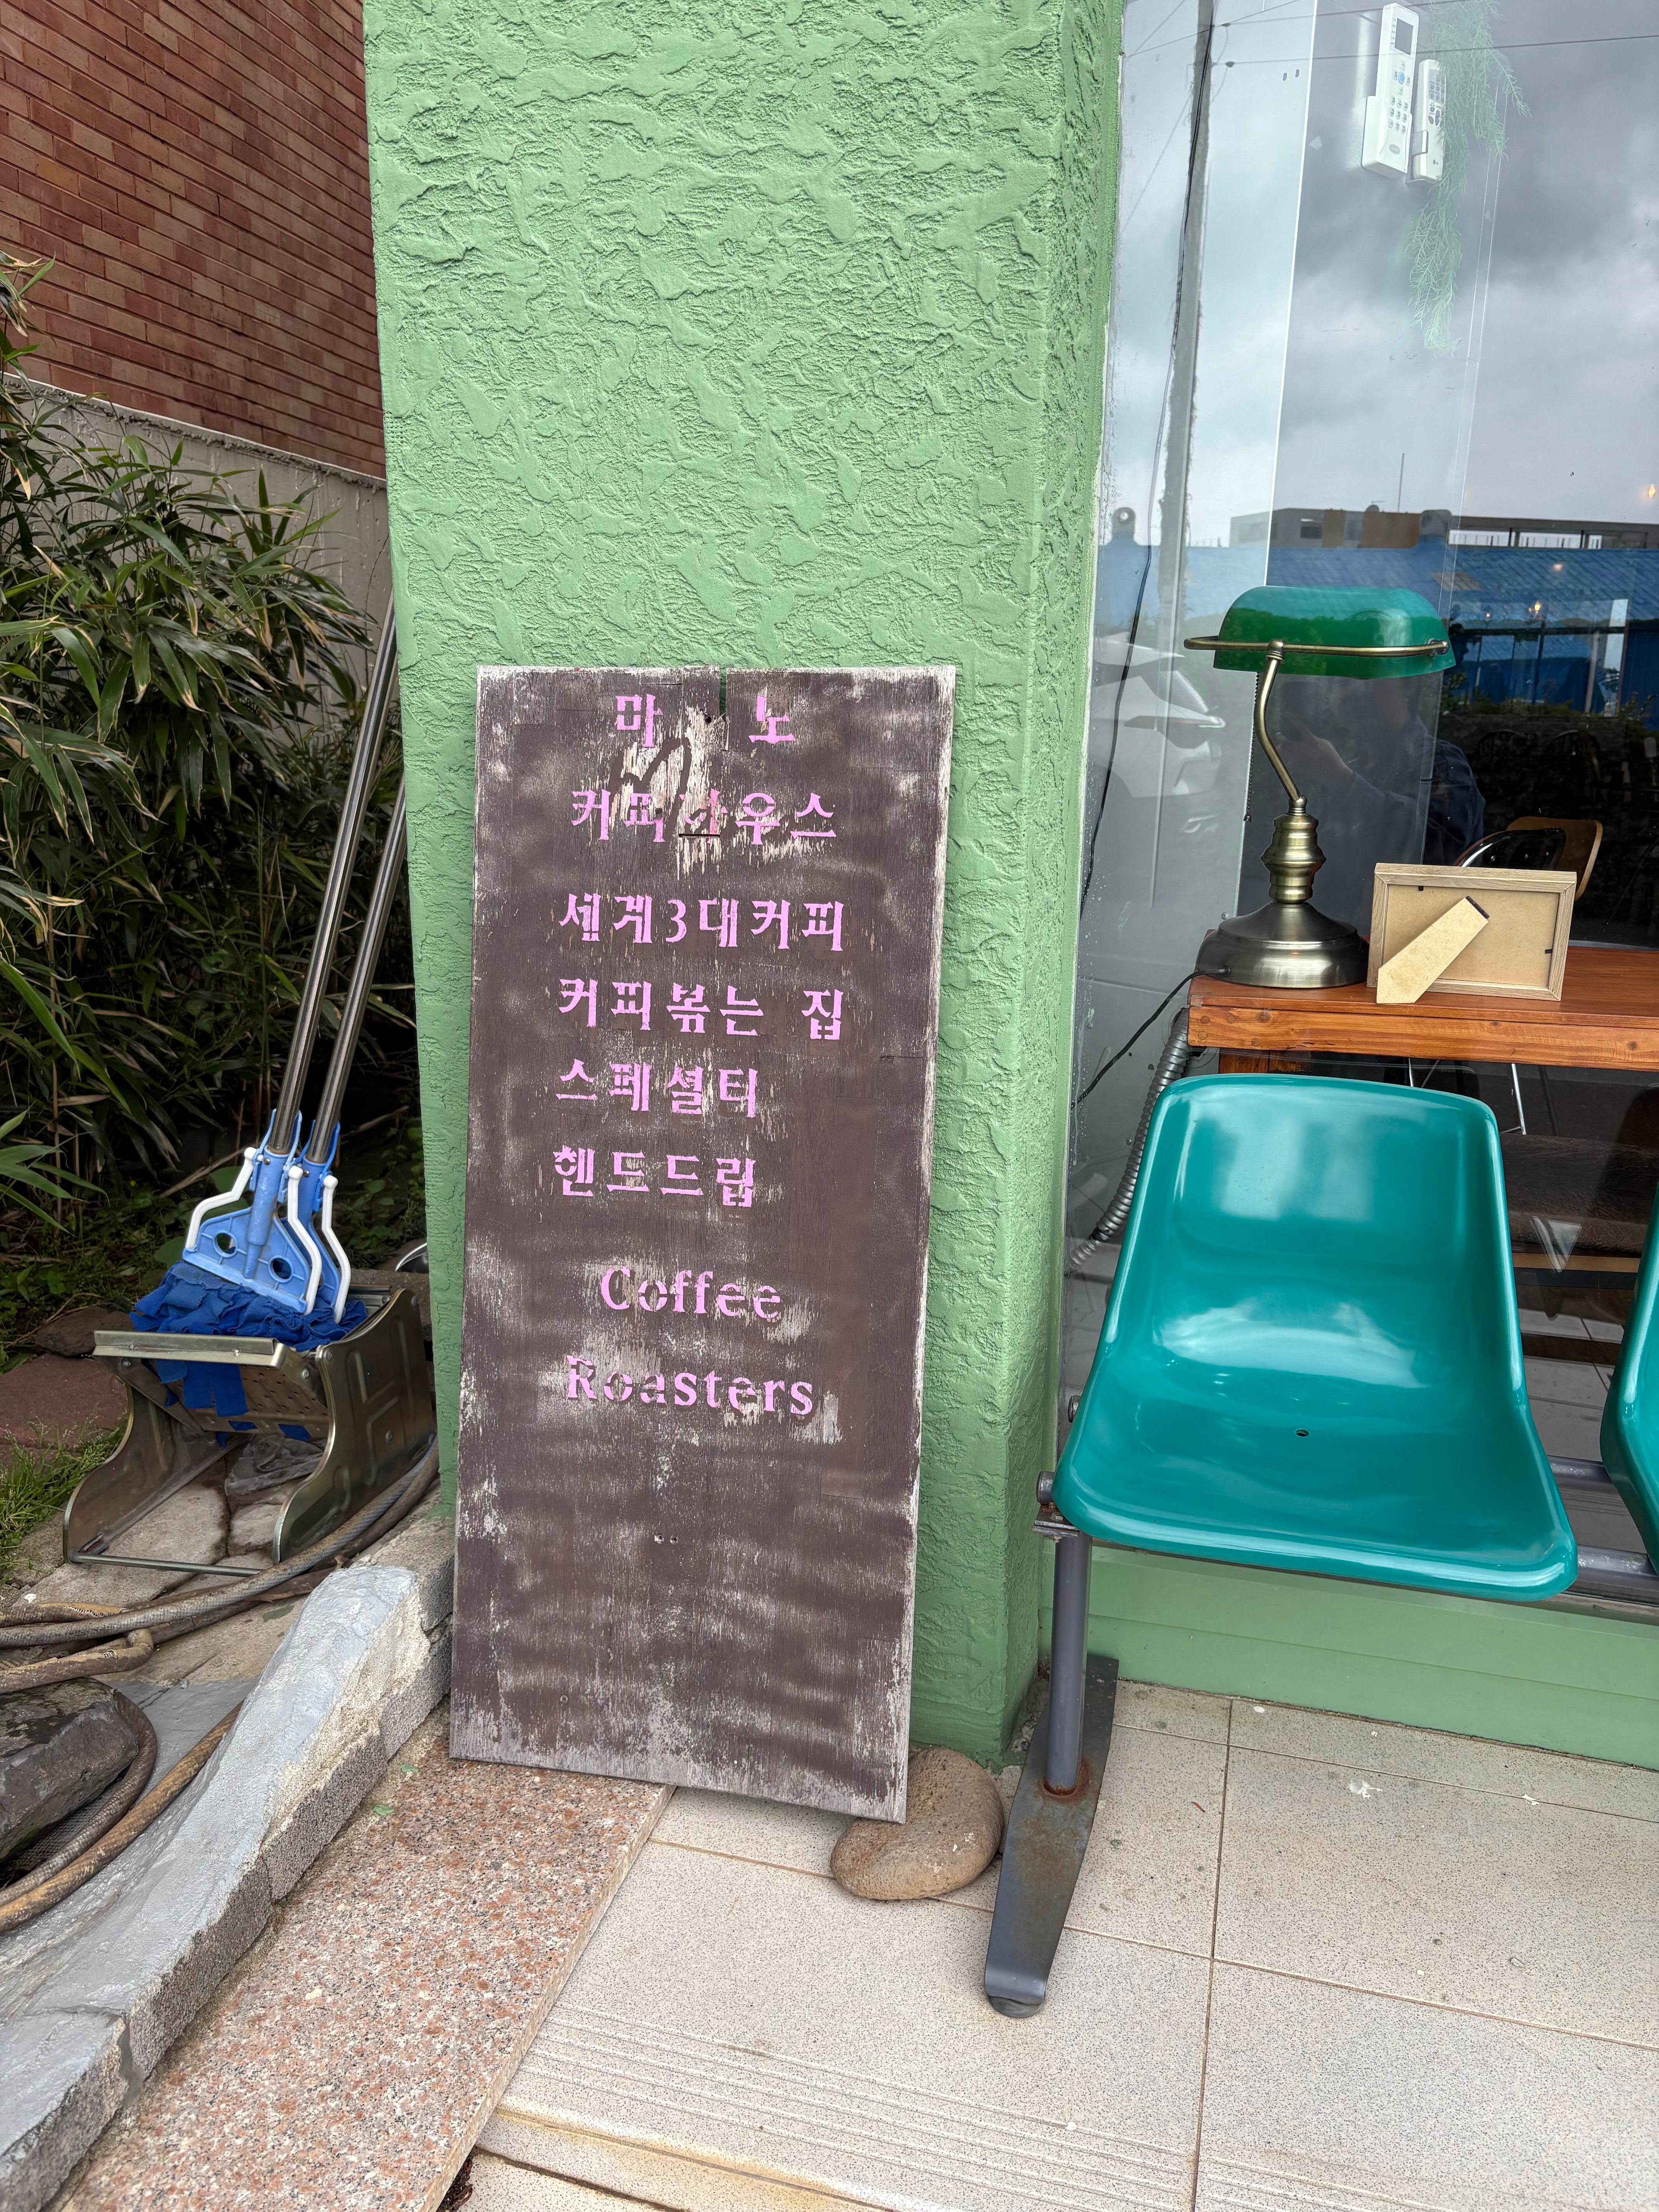 마 노
커피하우스
세계3대커피
커피볶는 집
스페셜티
핸드드립
Coffee
Roasters